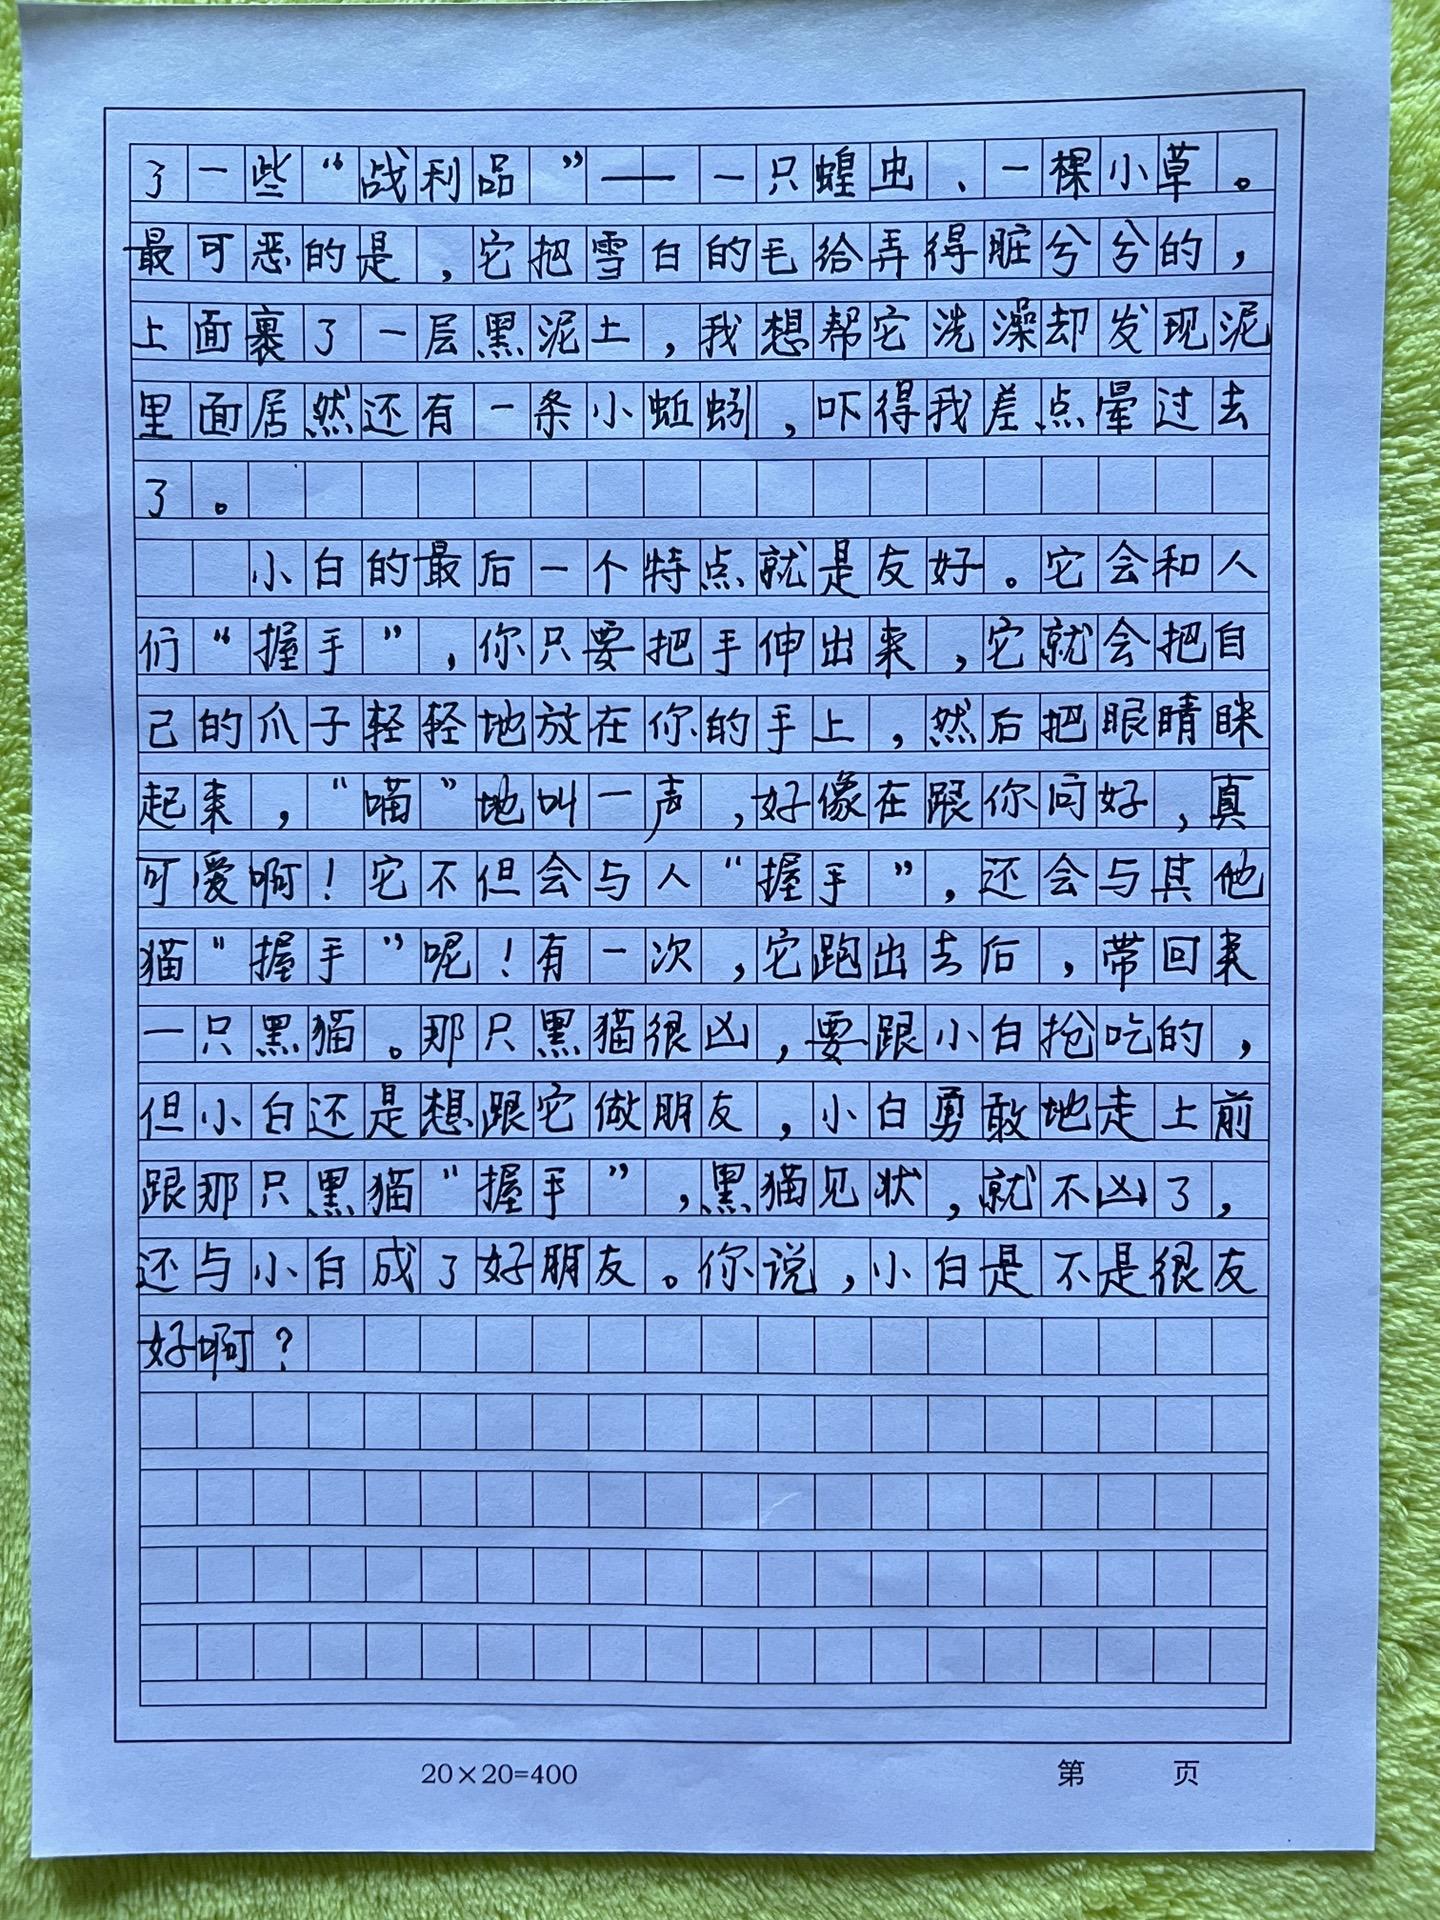 了一些“战利品”——一只蝗虫、一棵小草。
最可恶的是，它把雪白的毛给弄得脏兮兮的，
上面裹了一层黑泥土，我想帮它洗澡却发现泥
里面居然还有一条小蚯蚓，吓得我差点晕过去
了。
小白的最后一个特点就是友好。它会和人
们“握手”，你只要把手伸出来，它就会把自
己的爪子轻轻地放在你的手上，然后把眼睛眯
起来，“喵”地叫一声，好像在跟你问好，真
可爱啊！它不但会与人“握手”，还会与其他
猫“握手”呢！有一次，它跑出去后，带回来
一只黑猫。那只黑猫很凶，要跟小白抢吃的，
但小白还是想跟它做朋友，小白勇敢地走上前
跟那只黑猫“握手”，黑猫见状，就不凶了，
还与小白成了好朋友。你说，小白是不是很友
好啊？
20×20=400 第 页